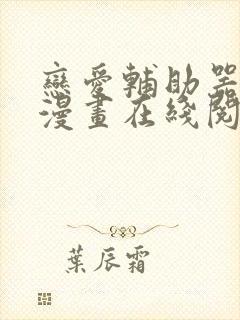 戀愛輔助器
漫畫在綫閱
葉辰霜